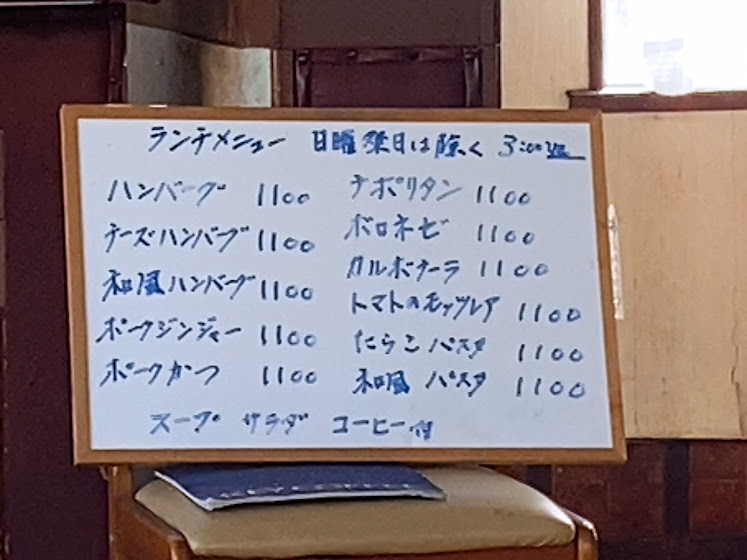 ランチメニュー 日曜祭日は除く 3:00迄
ハンバーグ 1100
チーズハンバーグ 1100
和風ハンバーグ 1100
ポークジンジャー 1100
ポークかつ 1100
ナポリタン 1100
ボロネゼ 1100
カルボナーラ 1100
トマトのモッツレア 1100
たらこパスタ 1100
和風パスタ 1100
スープ サラダ コーヒー付
KEY COFFEE